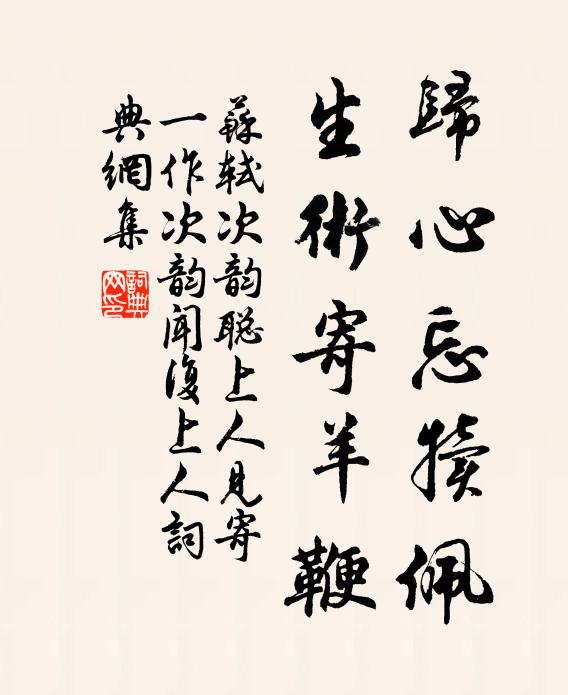 歸心忘犢佩
生術寄羊鞭
蘇軾次韵聪上人見寄
一作次韵闻復上人詞
典網集
詞典網印